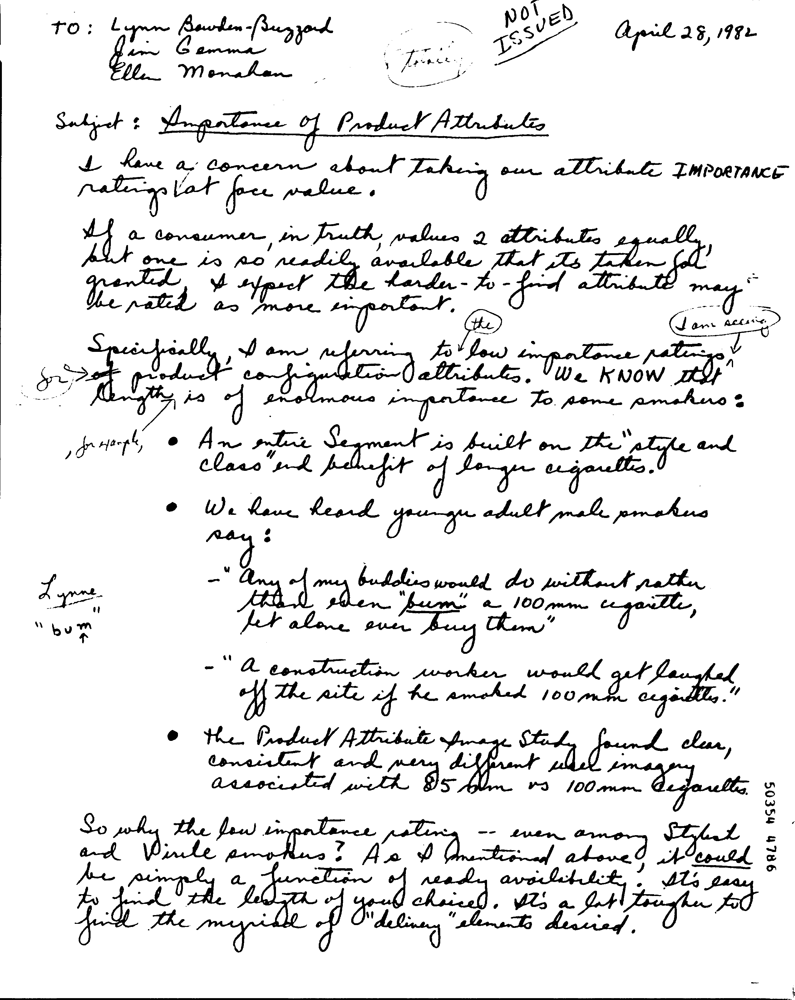 TO: Lynn Bowden-Buzzard
Jim Gemma
Ellen Monahan
NOT
ISSUED
April 28, 1982
Subject: Importance of Product Attributes
I have a concern about taking our attribute IMPORTANCE
ratings at face value.
If a consumer, in truth, values 2 attributes equally,
but one is so readily available that its taken for
granted, I expect the harder-to-find attribute may
be rated as more important.
the
I am seeing
Specifically, I am referring to low importance ratings
for of product configuration attributes. We KNOW that
length is of enormous importance to some smokers:
, for example,
• An entire Segment is built on the "style and
class" end benefit of longer cigarettes.
• We have heard younger adult male smokers
say:
- "Any of my buddies would do without rather
than even "bum" a 100mm cigarette,
let alone ever buy them"
Lynne
"bum"
- "A construction worker would get laughed
off the site if he smoked 100mm cigarettes."
• The Product Attribute Image Study found clear,
consistent and very different user imagery
associated with 85mm vs 100mm cigarettes.
50354 4786
So why the low importance rating -- even among Stylist
and Virile smokers? As I mentioned above, it could
be simply a function of ready availability. It's easy
to find the length of your choice. It's a lot tougher to
find the myriad of "delivery" elements desired.